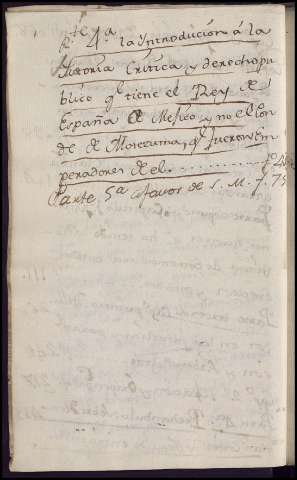 Pte 4ª la Yntroducion á la
Historia Critica, y derecho pu
blico ql tiene el Rey de
España á Mexico, y no el Con
de de Moteczuma, ql fueron Em
peradores de el..........
Parte 5ª á favor de S. M. f. 75